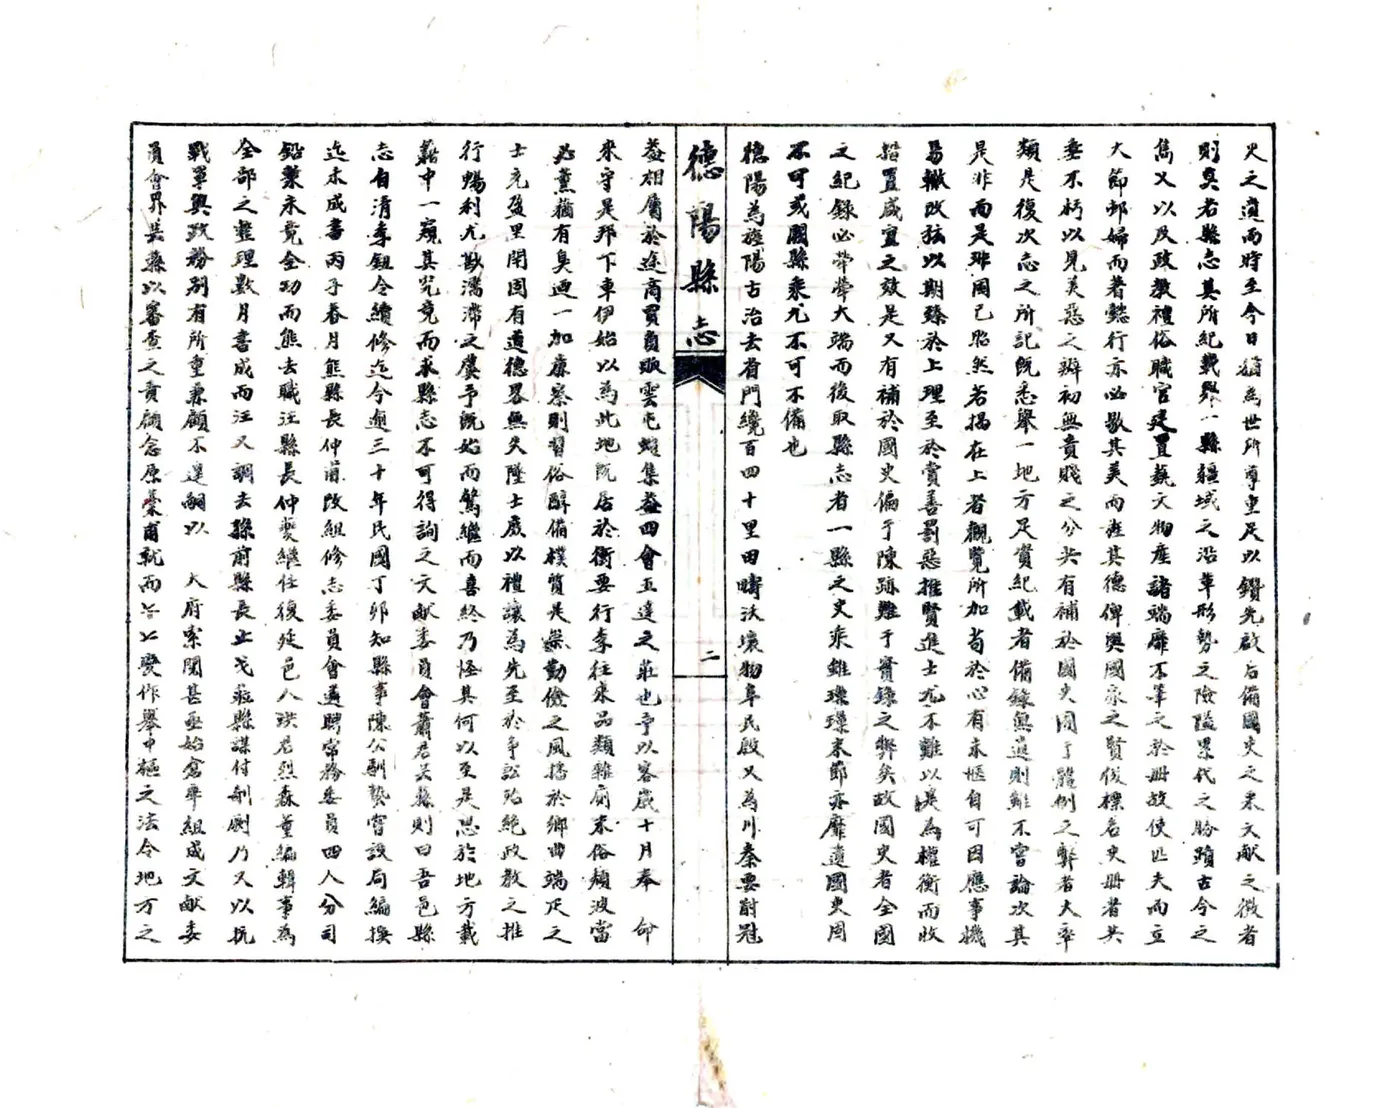 史之道而時至今日猶為世所尊重足以鑽先啟后備國史之采文獻之徵者
則莫若縣志其所紀載舉一縣疆域之沿革形勢之險隘累代之勝蹟古今之
雋乂以及政教禮俗職官建置藝文物產諸端靡不筆之於册故使匹夫而立
大節邨婦而著懿行亦必敭其美而旌其德俾與國家之賢俊標名史册者共
垂不朽以見美惡之辨初無貴賤之分共有補於國史囿于體例之弊者大率
類是復次志之所記既悉舉一地方足資紀載者備錄無遺則雖不嘗論次其
是非而是非固已昭然若揭在上者觀覽所加苟於心有未愜自可因應事機
易轍改弦以期臻於上理至於賞善罰惡推賢進士尤不難以是為權衡而收
措置咸宜之效是又有補於國史偏于陳跡難于實錄之弊矣故國史者全國
之紀錄必犖犖大端而後取縣志者一縣之史乘雖璅璅末節亦靡遺國史固
不可或闕縣乘尤不可不備也
德陽為旌陽古治去省門纔百四十里田疇沃壤物阜民殷又為川秦要尌冠
蓋相屬於途商賈負販雲屯蝟集蓋四會五達之莊也予以客歲十月奉 命
來守是邦下車伊始以為此地既居於衝要行李往來品類雜廁末俗頹波當
必薰蕕有臭迺一加廉察則習俗醇備樸質是崇勤儉之風播於鄉曲端疋之
士充盈里閈固有道德畧無失墜士庶以禮讓為先至於爭訟殆絕政教之推
行暢利尤尠濡滯之虞予既始而駭繼而喜終乃怪其何以至是思於地方載
籍中一窺其究竟而求縣志不可得詢之文獻委員會蕭君云蓀則曰吾邑縣
志自清季鈕令續修迄今逾三十年民國丁卯知縣事陳公馴贄嘗設局編撰
迄未成書丙子春月熊縣長仲甫改組修志委員會遴聘常務委員四人分司
鉛槧未竟全功而熊去職汪縣長仲夔繼任復延邑人洪君烈森董編輯事為
全部之整理數月書成而汪又調去縣前縣長止戈蒞縣謀付剞劂乃又以抗
戰軍興政務別有所重兼顧不遑嗣以 大府索閱甚亟始倉卒組成文獻委
員會畀長縣以審查之責顧念原稾甫就而 變作舉中樞之法令地方之
德陽縣志
二